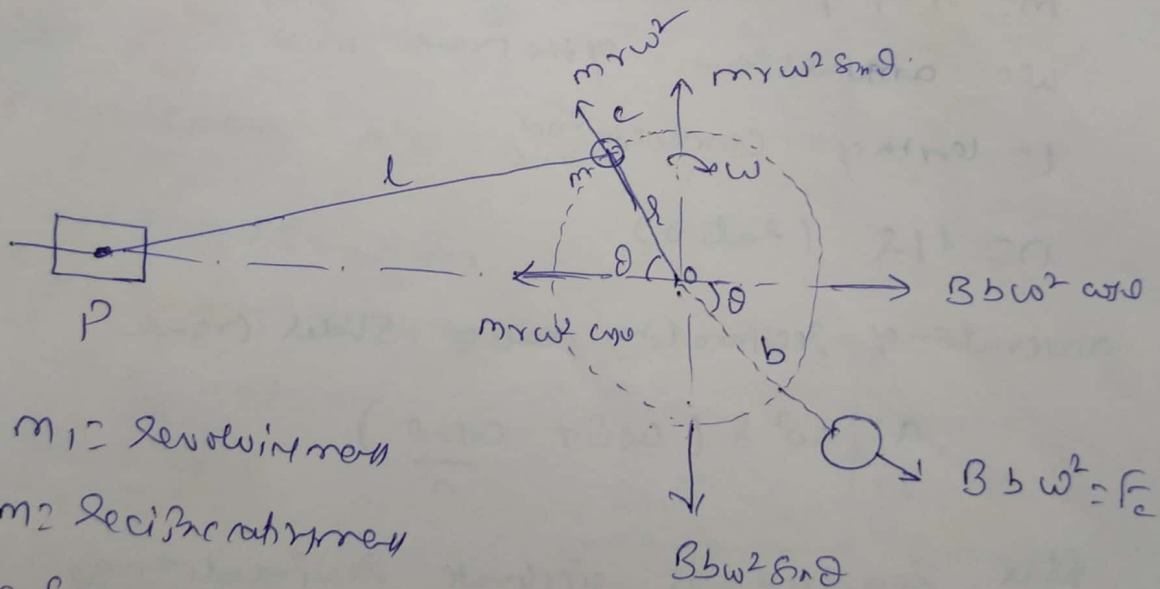 mrω²
mrω² sinθ
c
ω
m
l
r
θ
O
θ
Bbω² cosθ
P
mrω² cosθ
b
m₁ = Revolving mass
Bbω² = Fc
m = Reciprocating mass
Bbω² sinθ